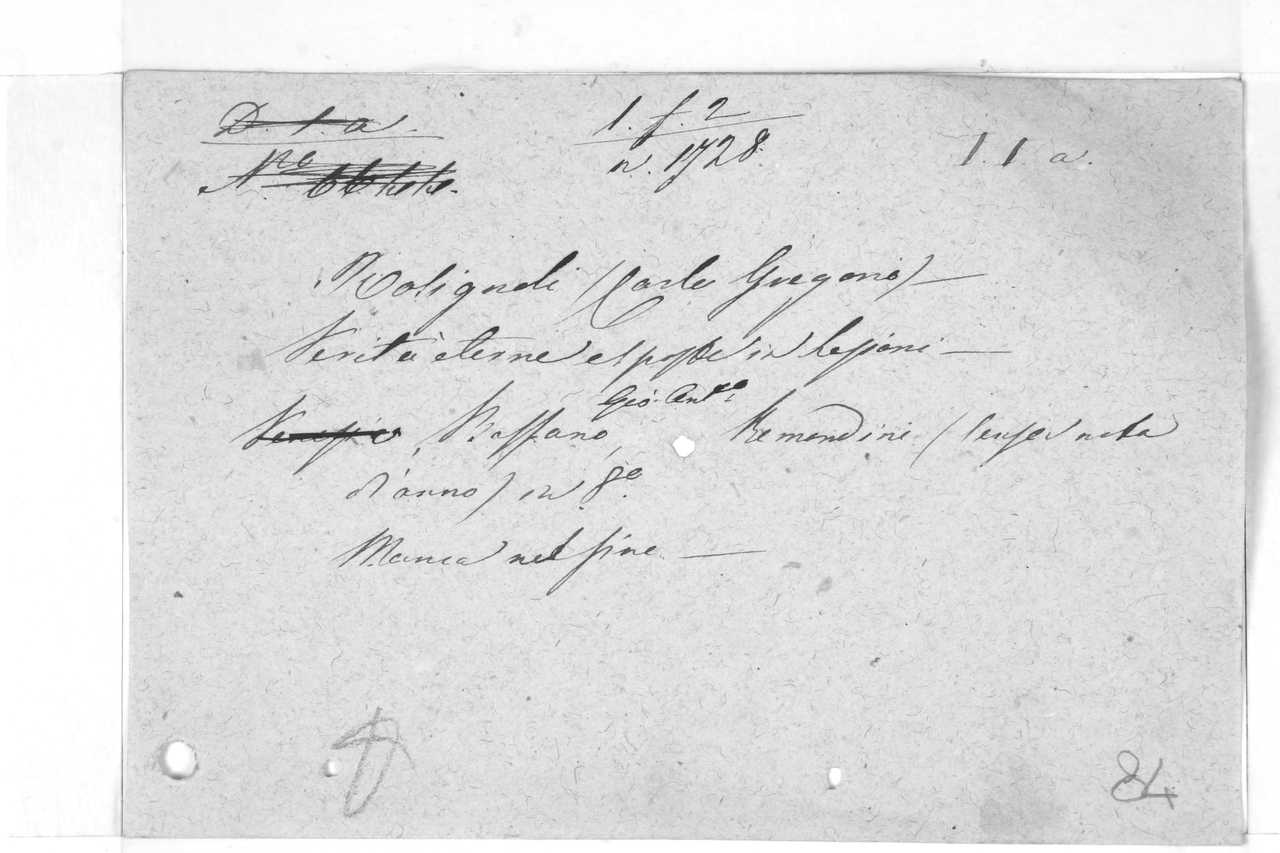 D. 1. a.
1. f. 2
n. 1728.
1. 1. a.
Rosignoli (Carlo Gregorio) —
Verità eterne esposte in lezioni —
Venezia, Bassano, Gio. Ant.º Remondini (senza nota
d'anno) in 8.º
Manca nel fine. —
84